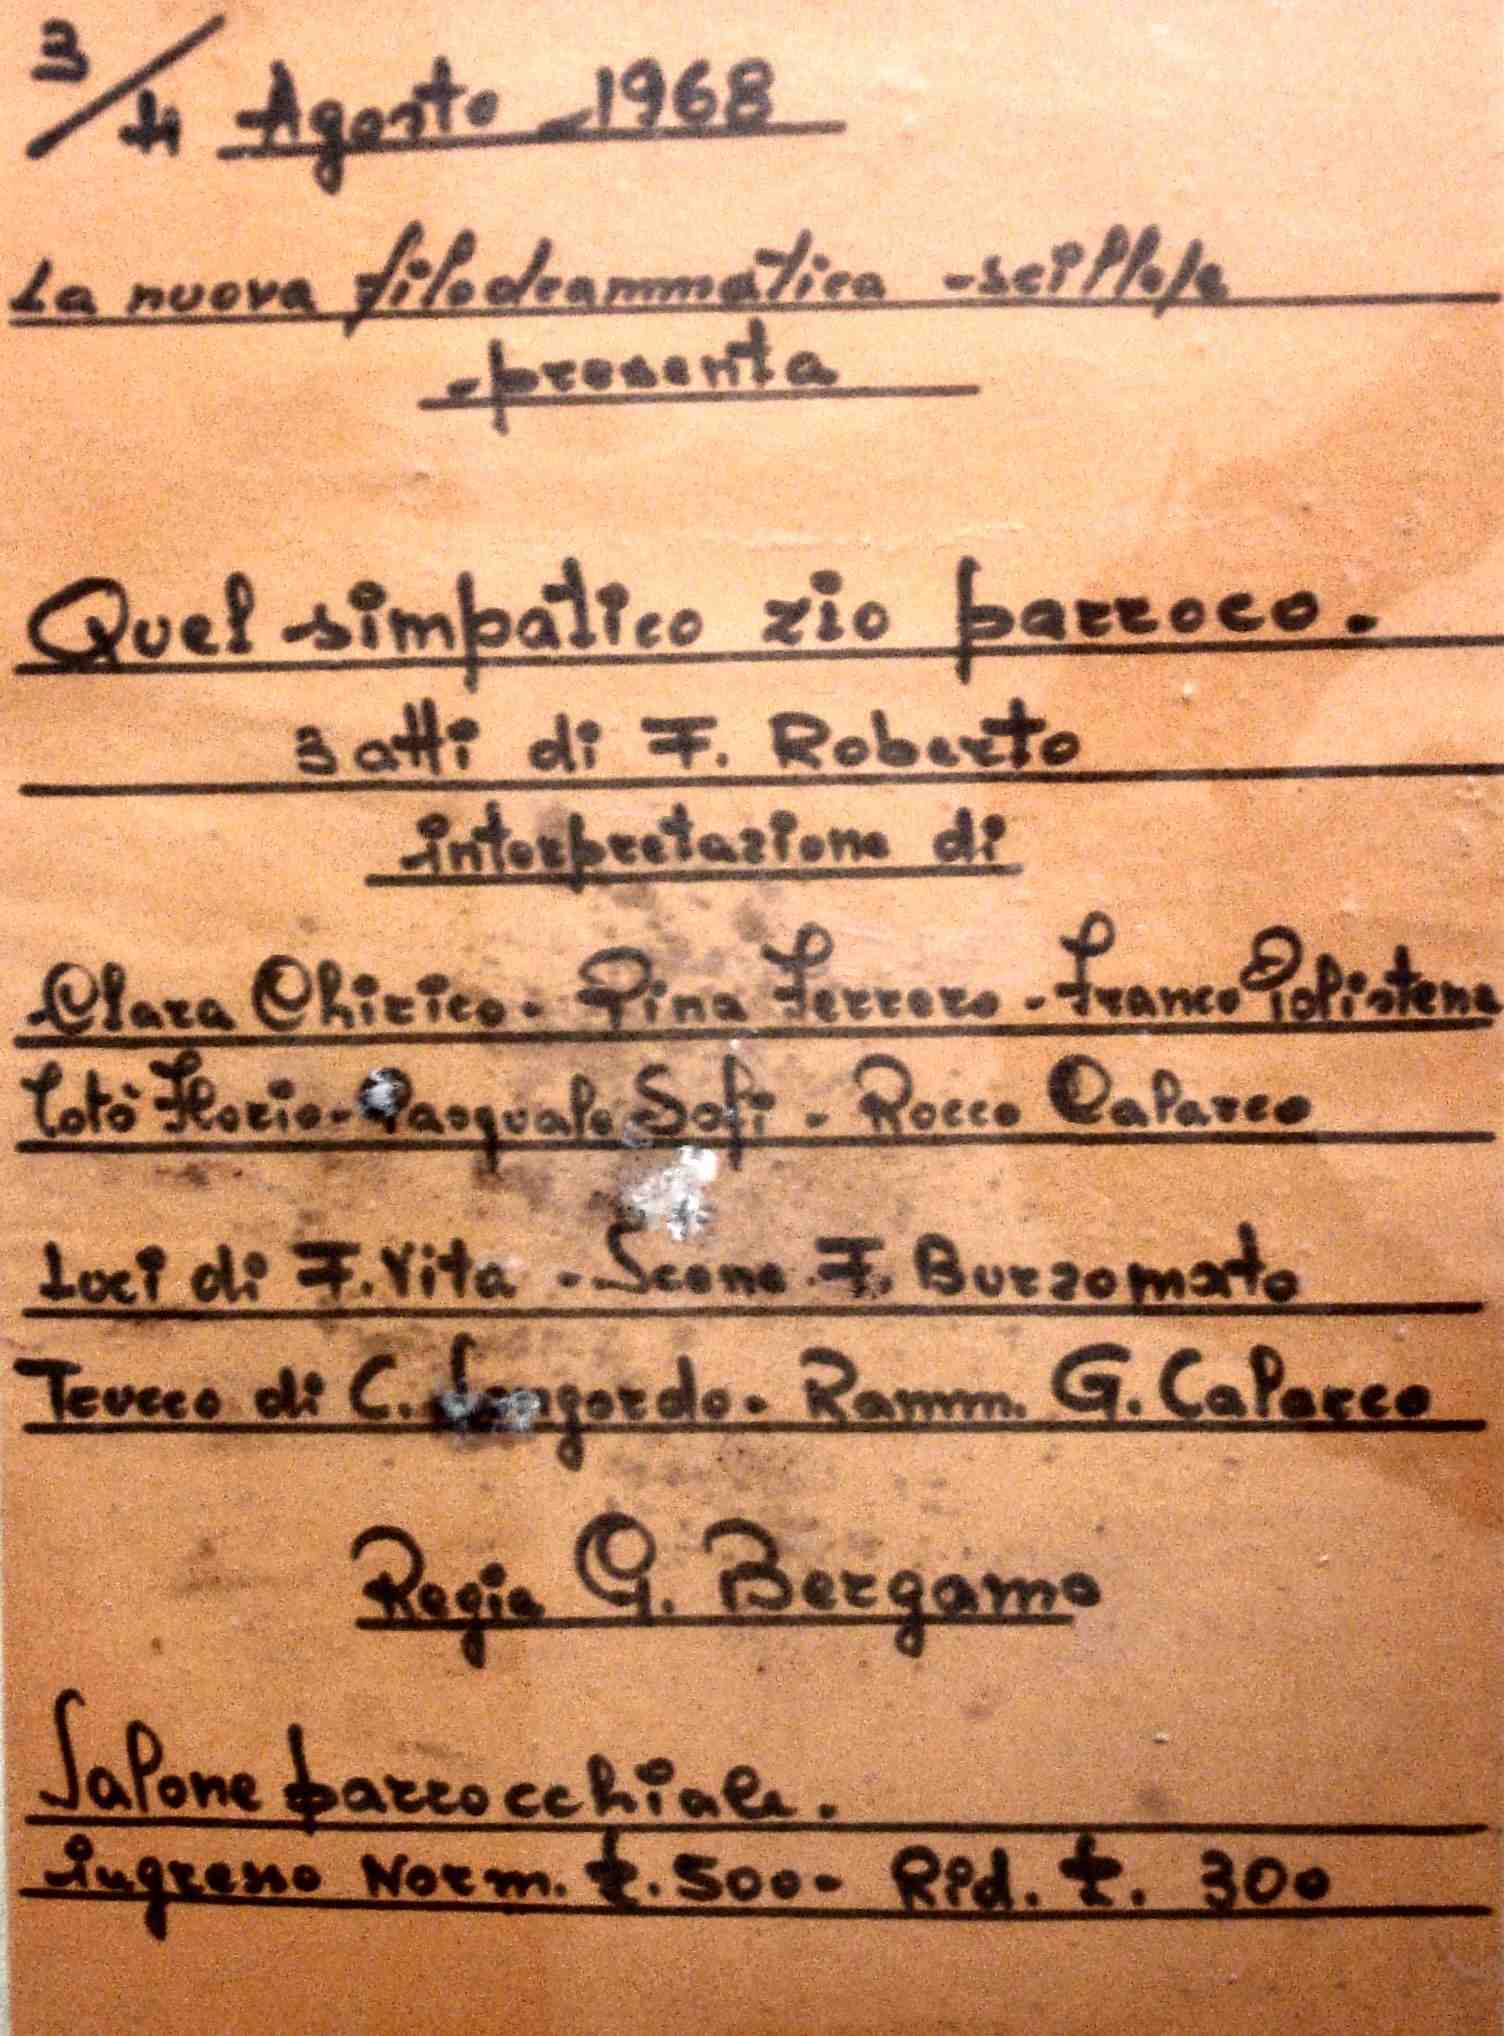 3/4 Agosto 1968
La nuova filodrammatica scillese
presenta
Quel simpatico zio parroco.
3 atti di F. Roberto
interpretazione di
Clara Chirico - Pina Ferrero - Franco Polistena
Totò Florio - Pasquale Sofi - Rocco Calarco
Luci di F. Vita - Scene F. Burzomato
Trucco di C. Longordo - Ramm. G. Calarco
Regia G. Bergamo
Salone parrocchiale.
ingresso Norm. £. 500 - Rid. £. 300